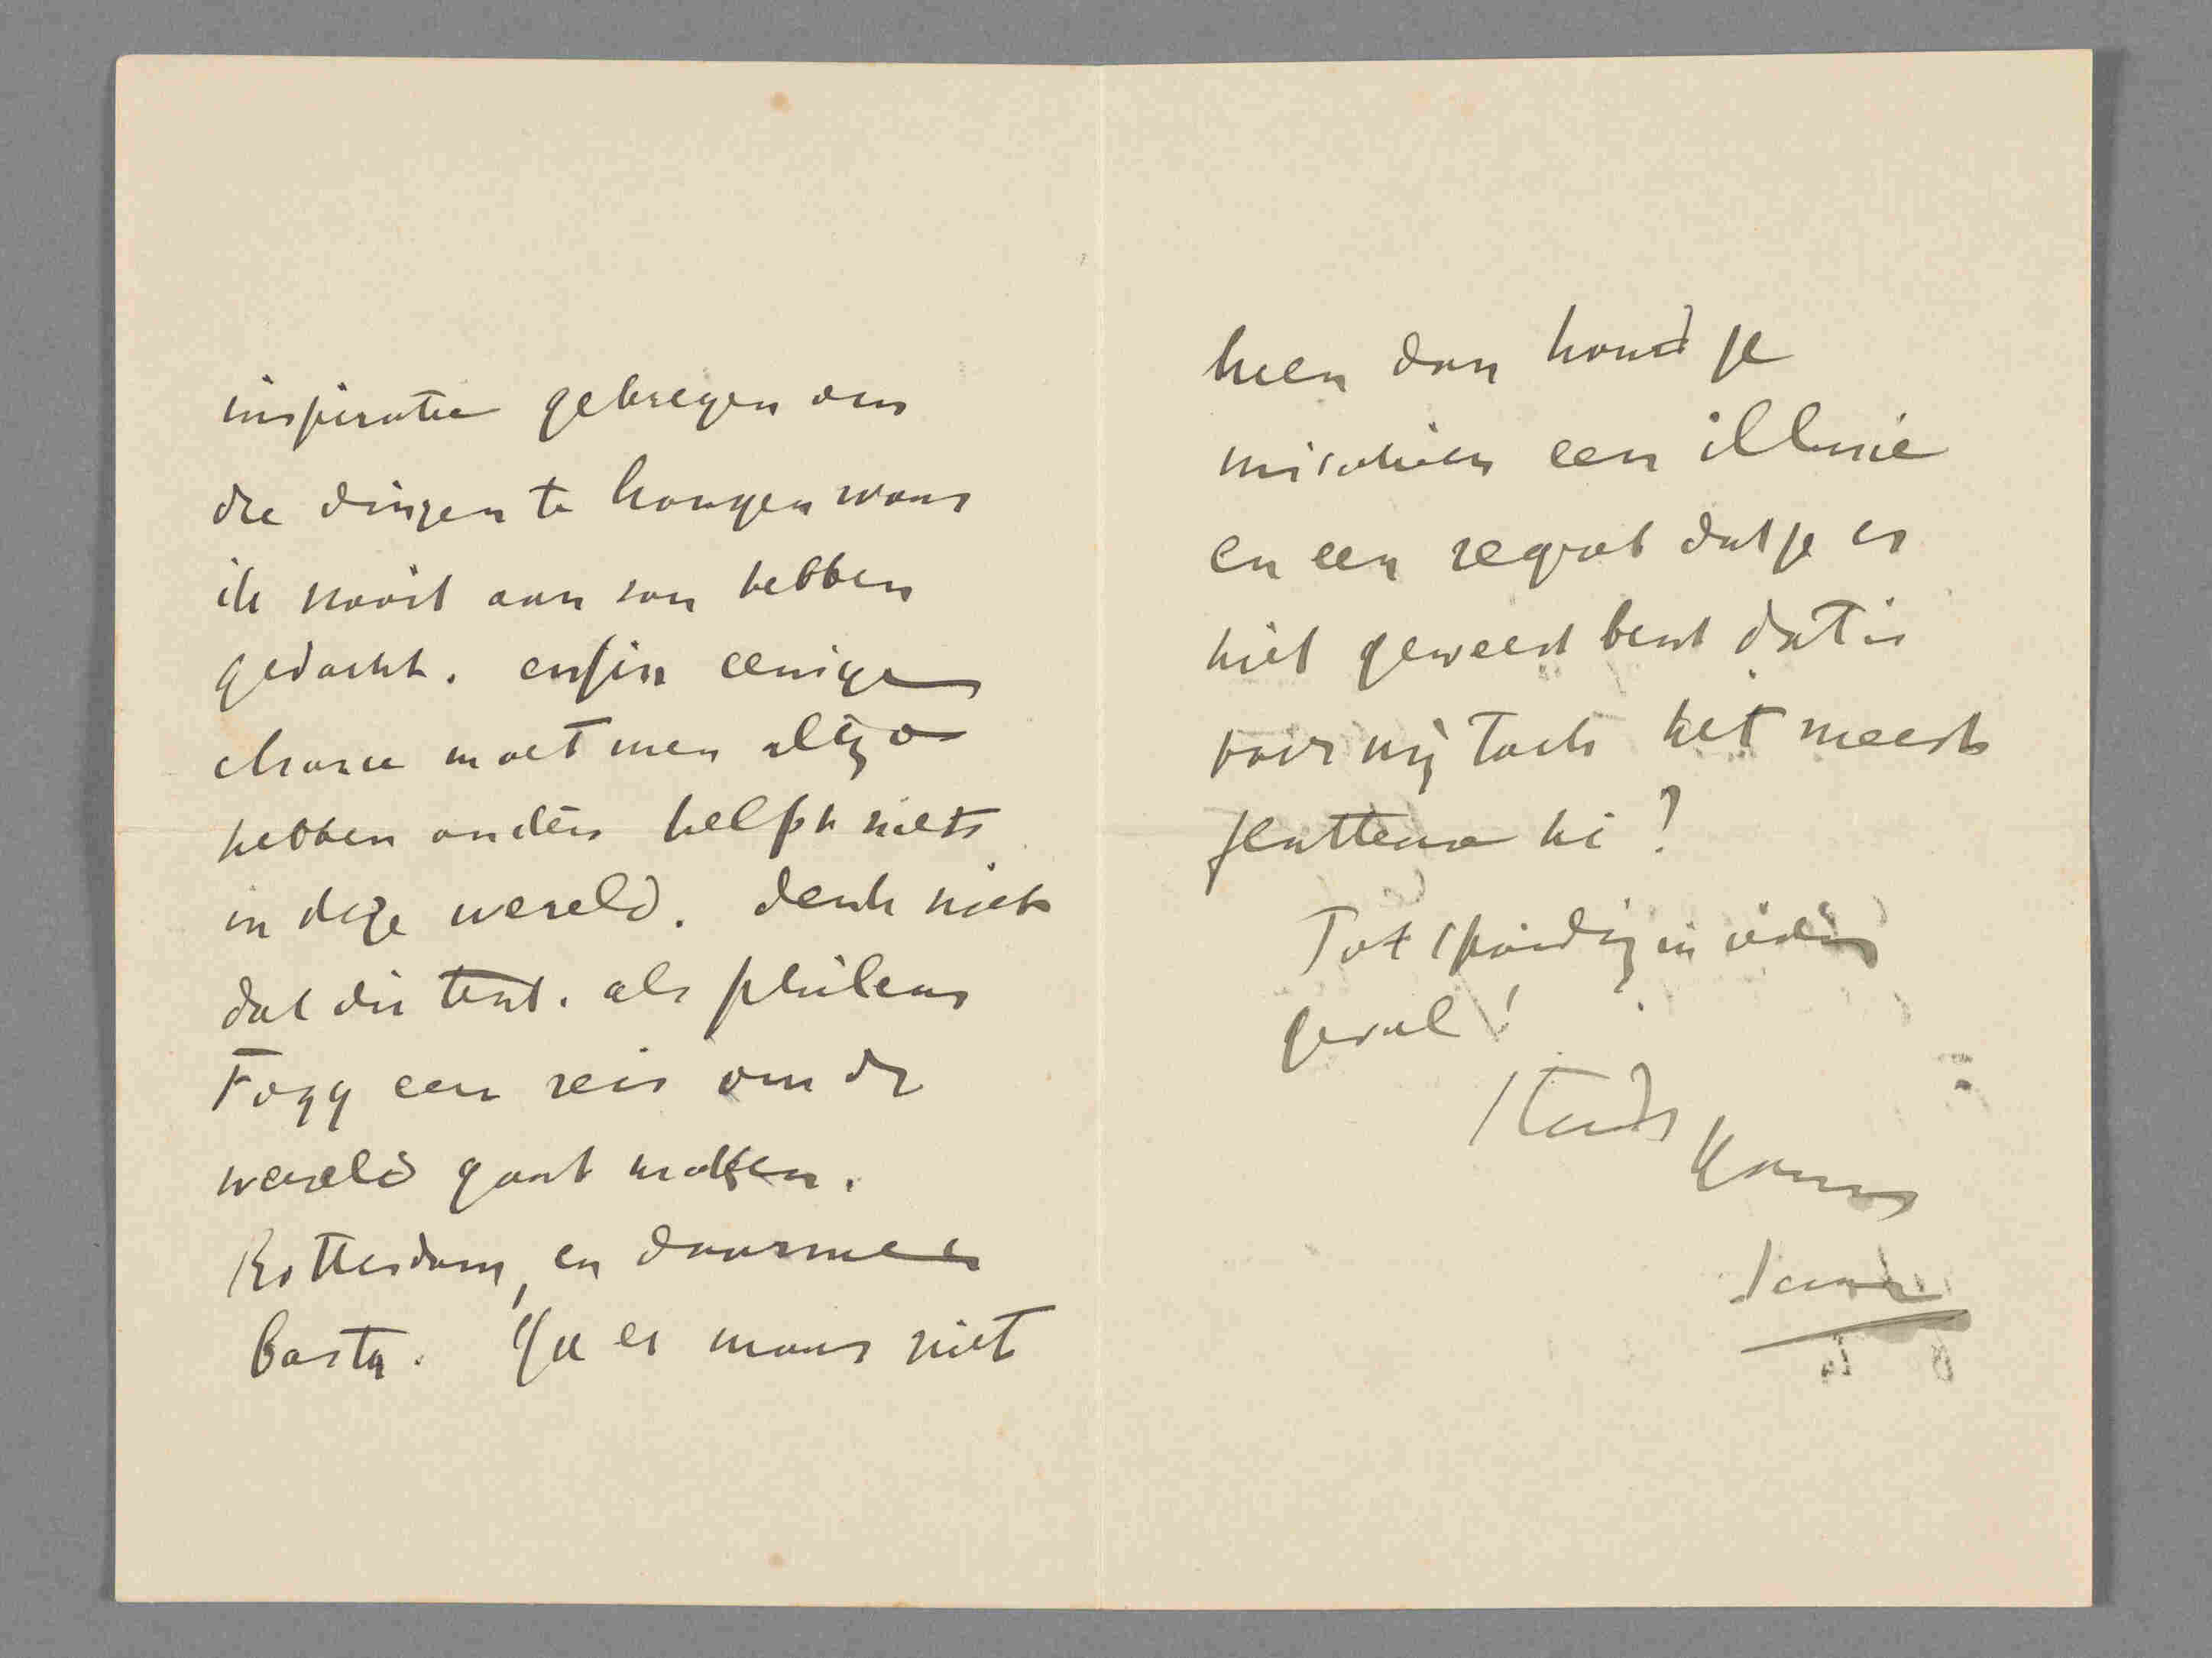 inspiratie gekregen om
die dingen te hangen waar
ik nooit aan zou hebben
gedacht. enfin eenige
chance moet men altijd
hebben anders helpt niets
in deze wereld. denk niet
dat die tent. als phileas
Fogg een reis om de
wereld gaat maken.
Rotterdam, en daarmee
basta. Ga er maar niet
heen dan houd je
misschien een illusie
en een regret dat je er
niet geweest bent dat is
voor mij toch het meest
flatteus hè?
Tot spoedig in ieder
geval!
Steeds